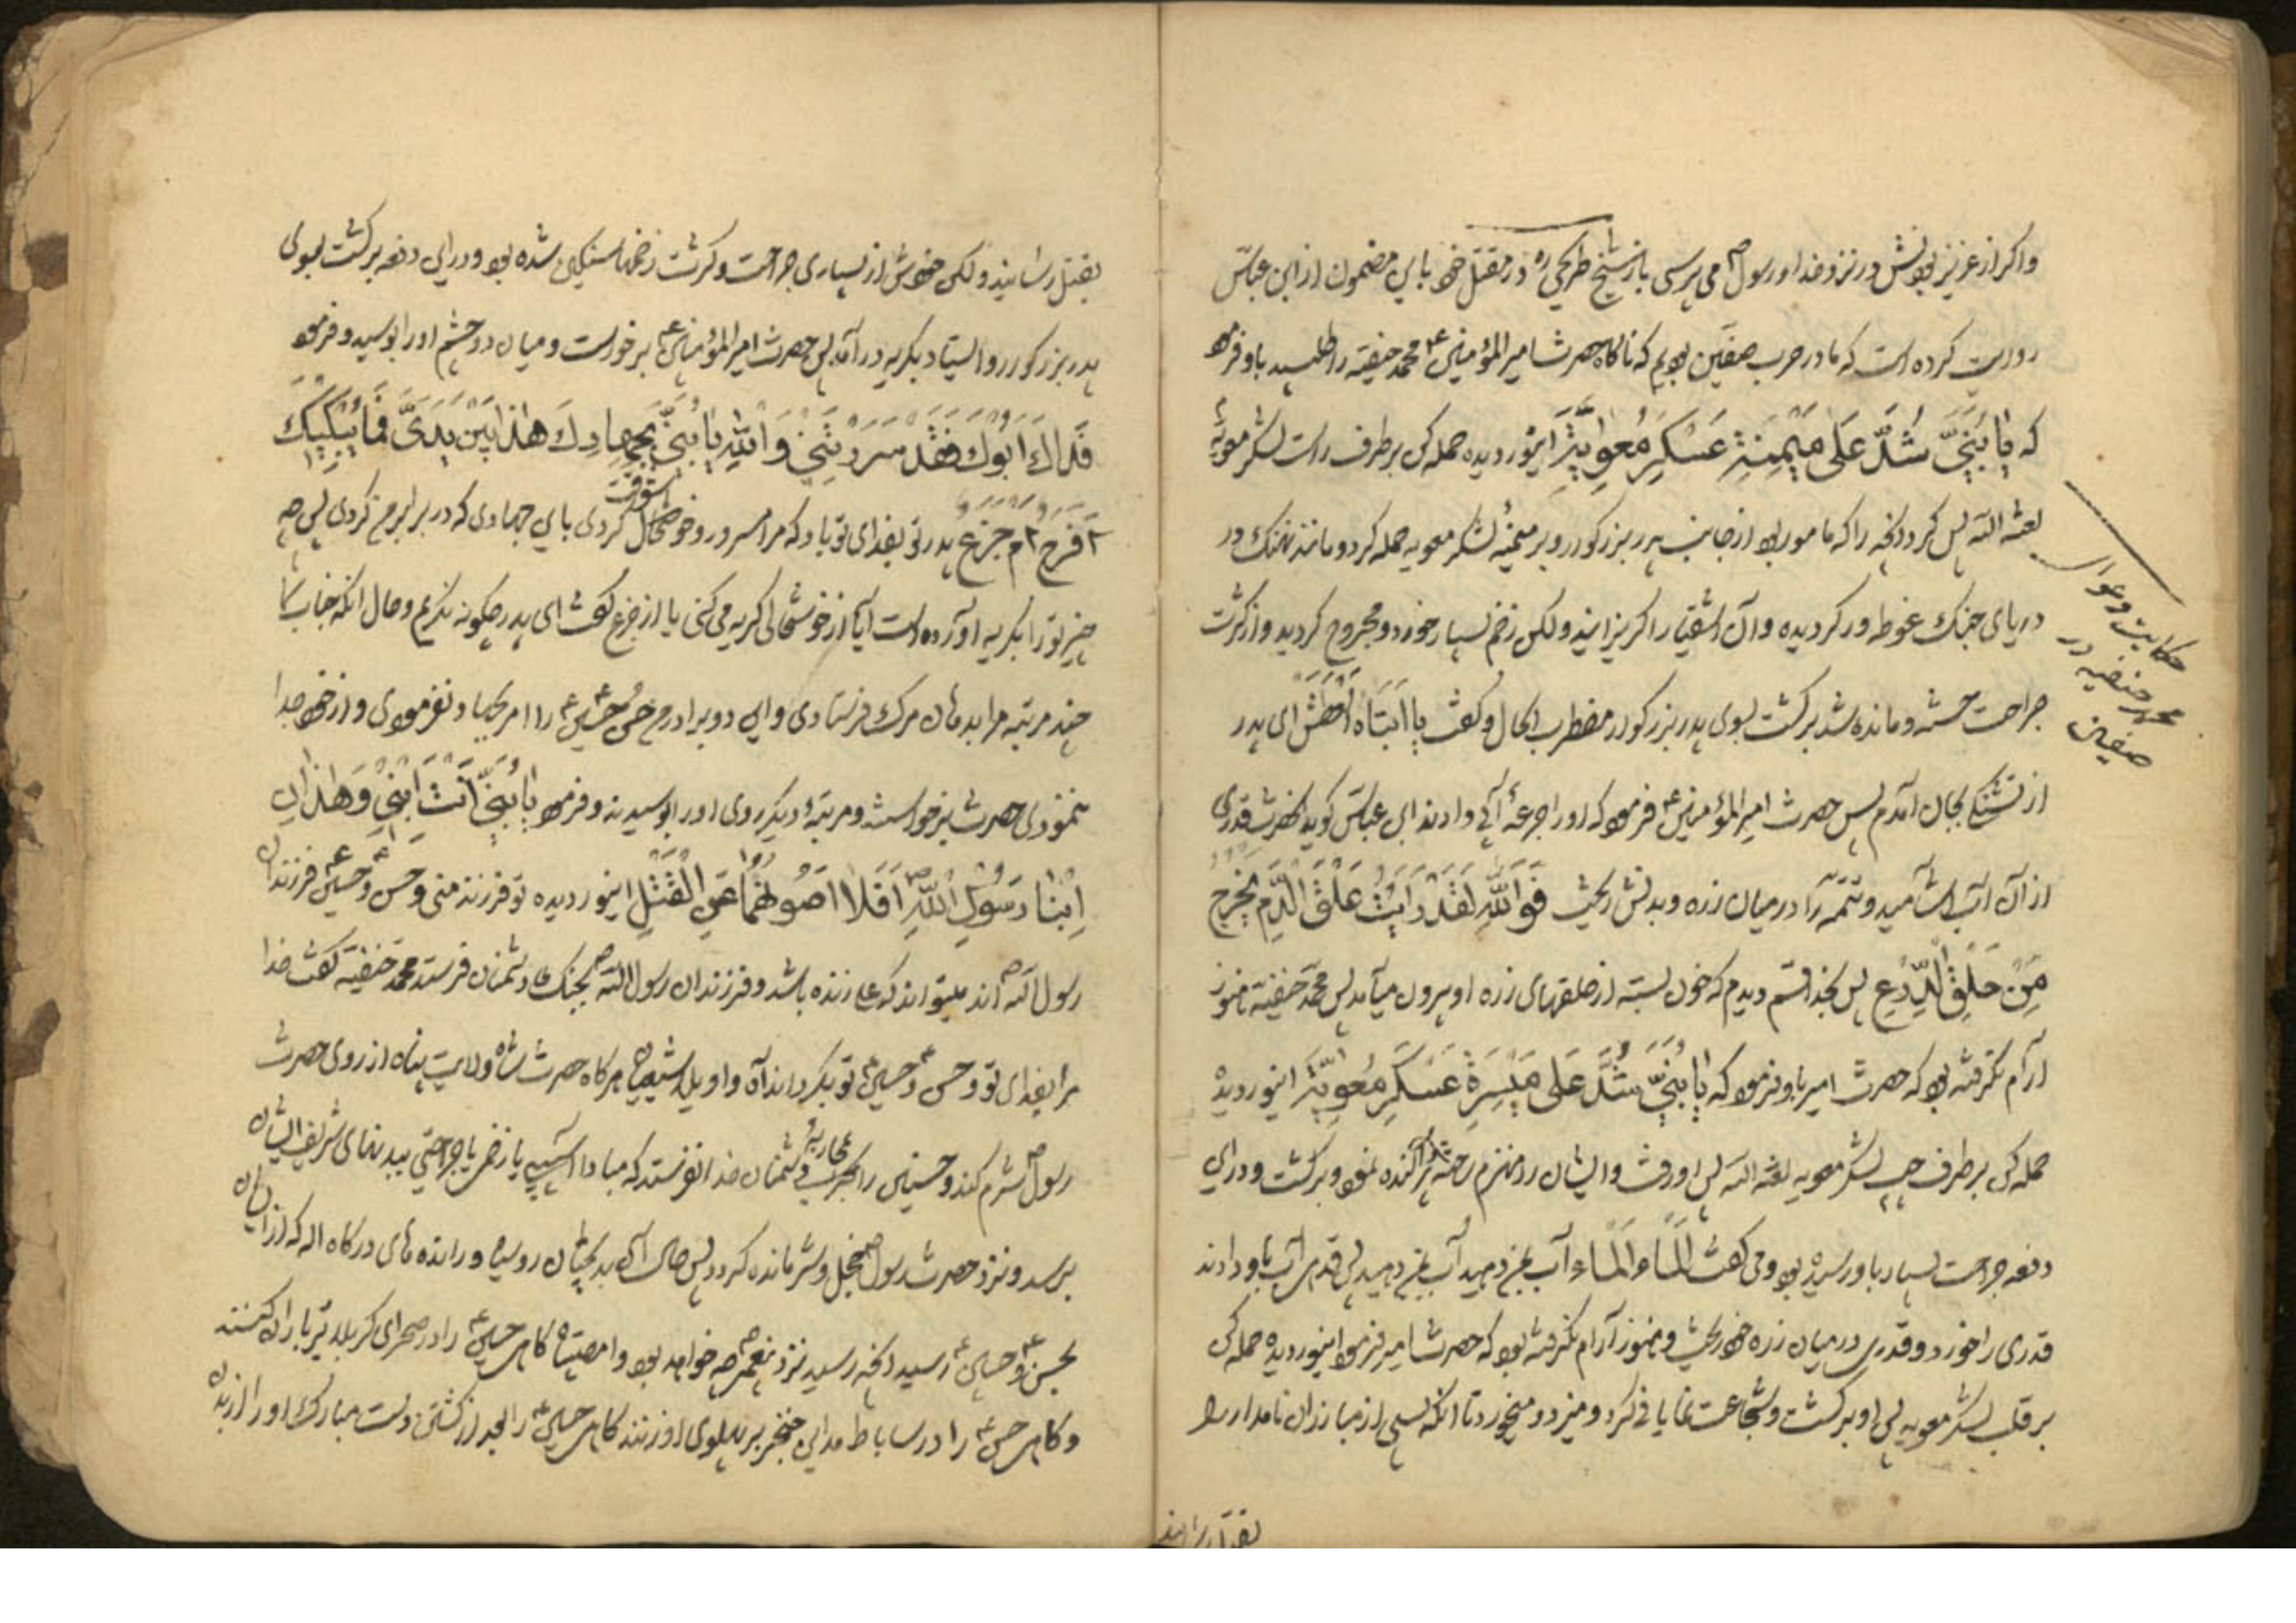 واکر از عزیز بودنش در نزد خدا و رسول ص می پرسی باز شیخ طریحی ره در مقتل خود باین مضمون از ابن عباس
روایت کرده است که ما در حرب صفین بودیم که ناکاه حضرت امیر المؤمنین ع محمد حنفیه را طلبید باو فرمود
که یا بُنَیَّ شُدَّ عَلی مَیْمَنَةِ عَسْکَرِ مُعویَةَ اینور دیده حمله کن بر طرف راست لشکر معویه
لعنه الله پس کرد انچه را که مامور بود از جانب پدر بزرکوار و بر میمنهٔ لشکر معویه حمله کرد و مانند نهنک در
دریای جنک غوطه ور کردیده و آن اشقیا را کریزانید ولکن زخم بسیار خورد و مجروح کردید و از کثرت
جراحت خسته و مانده شد برکشت بسوی پدر بزرکوار مضطرب الحال و کفت یا اَبَتاهُ العطش ای پدر
از تشنکی بجان آمدم پس حضرت امیر المؤمنین ع فرمود که او را جرعهٔ آبی دادند ابن عباس کوید انحضرت قدری
از آن آب آشامید و تتمه را در میان زره و بدنش ریخت فَوَاللّهِ لَقَدْ رَایْتُ عَلَقَ الدَّمِ یَخْرُجُ
مِنْ حَلَقِ الدِّرْعِ پس بخدا قسم دیدم که خون بسته از حلقهای زره او بیرون میآمد پس محمد حنفیه هنوز
آرام نکرفته بود که حضرت امیر باو فرمود که یا بُنَیَّ شُدَّ عَلی مَیْسَرَةِ عَسْکَرِ مُعویَةَ اینور دیده
حمله کن بر طرف چپ لشکر معویه لعنه الله پس او رفت و ایشان را منهزم ساخته پراکنده نمود و برکشت و در این
دفعه جراحت بسیار باو رسیده بود و می کفت اَلْماءَ اَلْماءَ آب بمن دهید آب بمن دهید پس قدری آب باو دادند
قدری را خورد و قدری در میان زره خود ریخت و هنوز آرام نکرفته بود که حضرت امیر فرمود اینور دیده حمله کن
بر قلب لشکر معویه پس او برکشت و شجاعت نمایانی کرد و میزد و میخورد تا انکه بسی از مبارزان نامدار را
بقتل رسانید
حکایت دعوای
محمد حنفیه در
صفین
بقتل رسانید ولکن خودش از بسیاری جراحت و کثرت زخمها سنکین شده بود و در این دفعه برکشت بسوی
پدر بزرکوار و ایستاد بکریه در آمد پس حضرت امیر المؤمنین ع برخواست و میان دو چشم او را بوسید و فرمود
فَداكَ اَبُوكَ فَقَدْ سَرَرْتَنی وَ اللهِ یا بُنَیَّ بِجِهادِكَ هٰذا بَیْنَ یَدَیَّ فَما یُبْکیكَ
اَفَرَحٌ اَمْ جَزَعٌ پدر تو بفدای تو باد که مرا مسرور و خوشحال کردی باین جهادی که در برابر من کردی پس چه
چیز تو را بکریه آورده است آیا از خوشحالی کریه می کنی یا از جزع کفت ای پدر چکونه نکریم و حال انکه جناب شما
چند مرتبه مرا بدهان مرک فرستادی و این دو برادرم حسن و حسین ع را امر بجهاد نفرمودی و از خود جدا
ننمودی حضرت برخواست و مرتبهٔ دیکر روی او را بوسیدند و فرمود یا بُنَیَّ اَنْتَ اِبْنی وَ هٰذانِ
اِبْنا رَسُولِ اللّهِ ص اَفَلا اَصُونُهُما عَنِ الْقَتْلِ اینور دیده تو فرزند منی و حسن ع و حسین ع فرزندان
رسول الله ص اند میتواند که علی زنده باشد و فرزندان رسول الله ص بجنک دشمنان فرستد محمد حنفیه کفت خدا
مرا بفدای تو و حسن ع و حسین ع تو بکرداند آه و اویلا شیعیان هرکاه حضرت شاه ولایت پناه از روی حضرت
رسول ص شرم کند و حسنین را بمحاربهٔ دشمنان خدا نفرستد که مبادا آسیبی یا زخمی یا جراحتی ببدنهای شریف ایشان
برسد و نزد حضرت رسول ص خجل و شرمنده کردد پس حال آن بدبختان روسیاه و رانده های درکاه اله که از ایشان
بحسن ع و حسین ع رسید انچه رسید نزد پیغمبر ص چه خواهد بود وا مصیبتاه کاهی حسین ع را در صحرای کربلا تیر باران کنند
و کاهی حسن ع را در ساباط مداین خنجر بر پهلوی او زنند کاهی حسین ع را بعد از کشتن دست مبارک او را از بدن